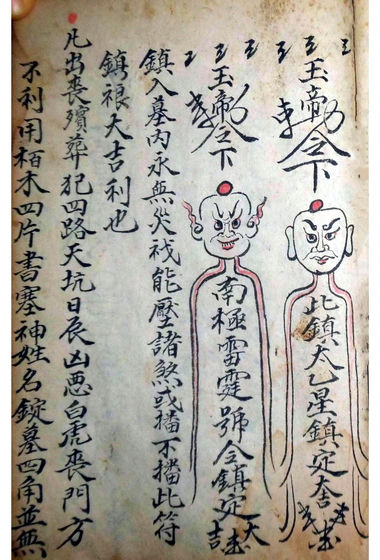 玉帝敕令下
此鎮太乙星鎮定大吉
玉帝敕令下
南極雷霆號令鎮定大吉
鎮入墓內永無災禍能壓諸煞或擋不擋此符
鎮禳大吉利也
凡出喪殯葬犯四路天坑日辰凶惡白虎喪門方
不利用栢木四片書塞神姓名錠墓四角並無